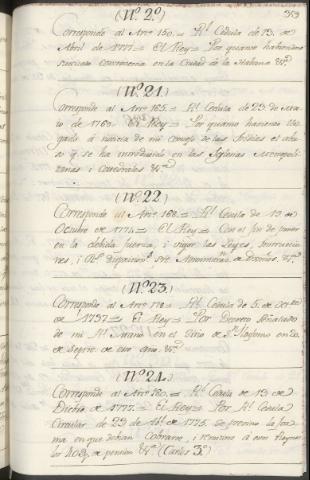 (Nº. 2.º)
353
Corresponde al Arº. 150.= Rl. Cedula de 13. de
Abril de 1777.= El Rey= Por quanto haviendose
en la Ciudad de la Habana &ª.
(Nº. 21.)
Corresponde al Arº. 165.= Rl. Cedula de 23. de
de 1769.= El Rey= Por quanto haviendo lle-
gado à noticia de mi Consejo de las Indias el abu-
so q. se ha introducido en las Iglesias Metropoli-
tanas i Catedrales &ª.
(Nº. 22.)
Corresponde al Arº. 168.= Rl. Cedula de 19 de
Octubre de 1774.= El Rey= Con el fin de poner
en la debida fuerza, i vigor las Leyes, Instruccio-
nes, i Rs. Disposics. sre. de &ª.
(Nº. 23.)
Corresponde al Arº. 170.= Rl. Cedula de 5. de Octre.
de 1737= El Rey= Por Decreto señalado
de mi Rl. Mano en el Sitio de Sn. Ildefonso en 20.
de Sepre. de este año. &ª.
(Nº. 24.)
Corresponde al Arº. 180.= Rl. Cedula de 13 de
de 1777.= El Rey= Por Rl. Cedula
Circular de 23 de Abl. de 1775. se previno la for-
ma en que debian Cobrarse, i remitirse a estos Reynos
los 40 de pension &ª. (Carlos 3.º)